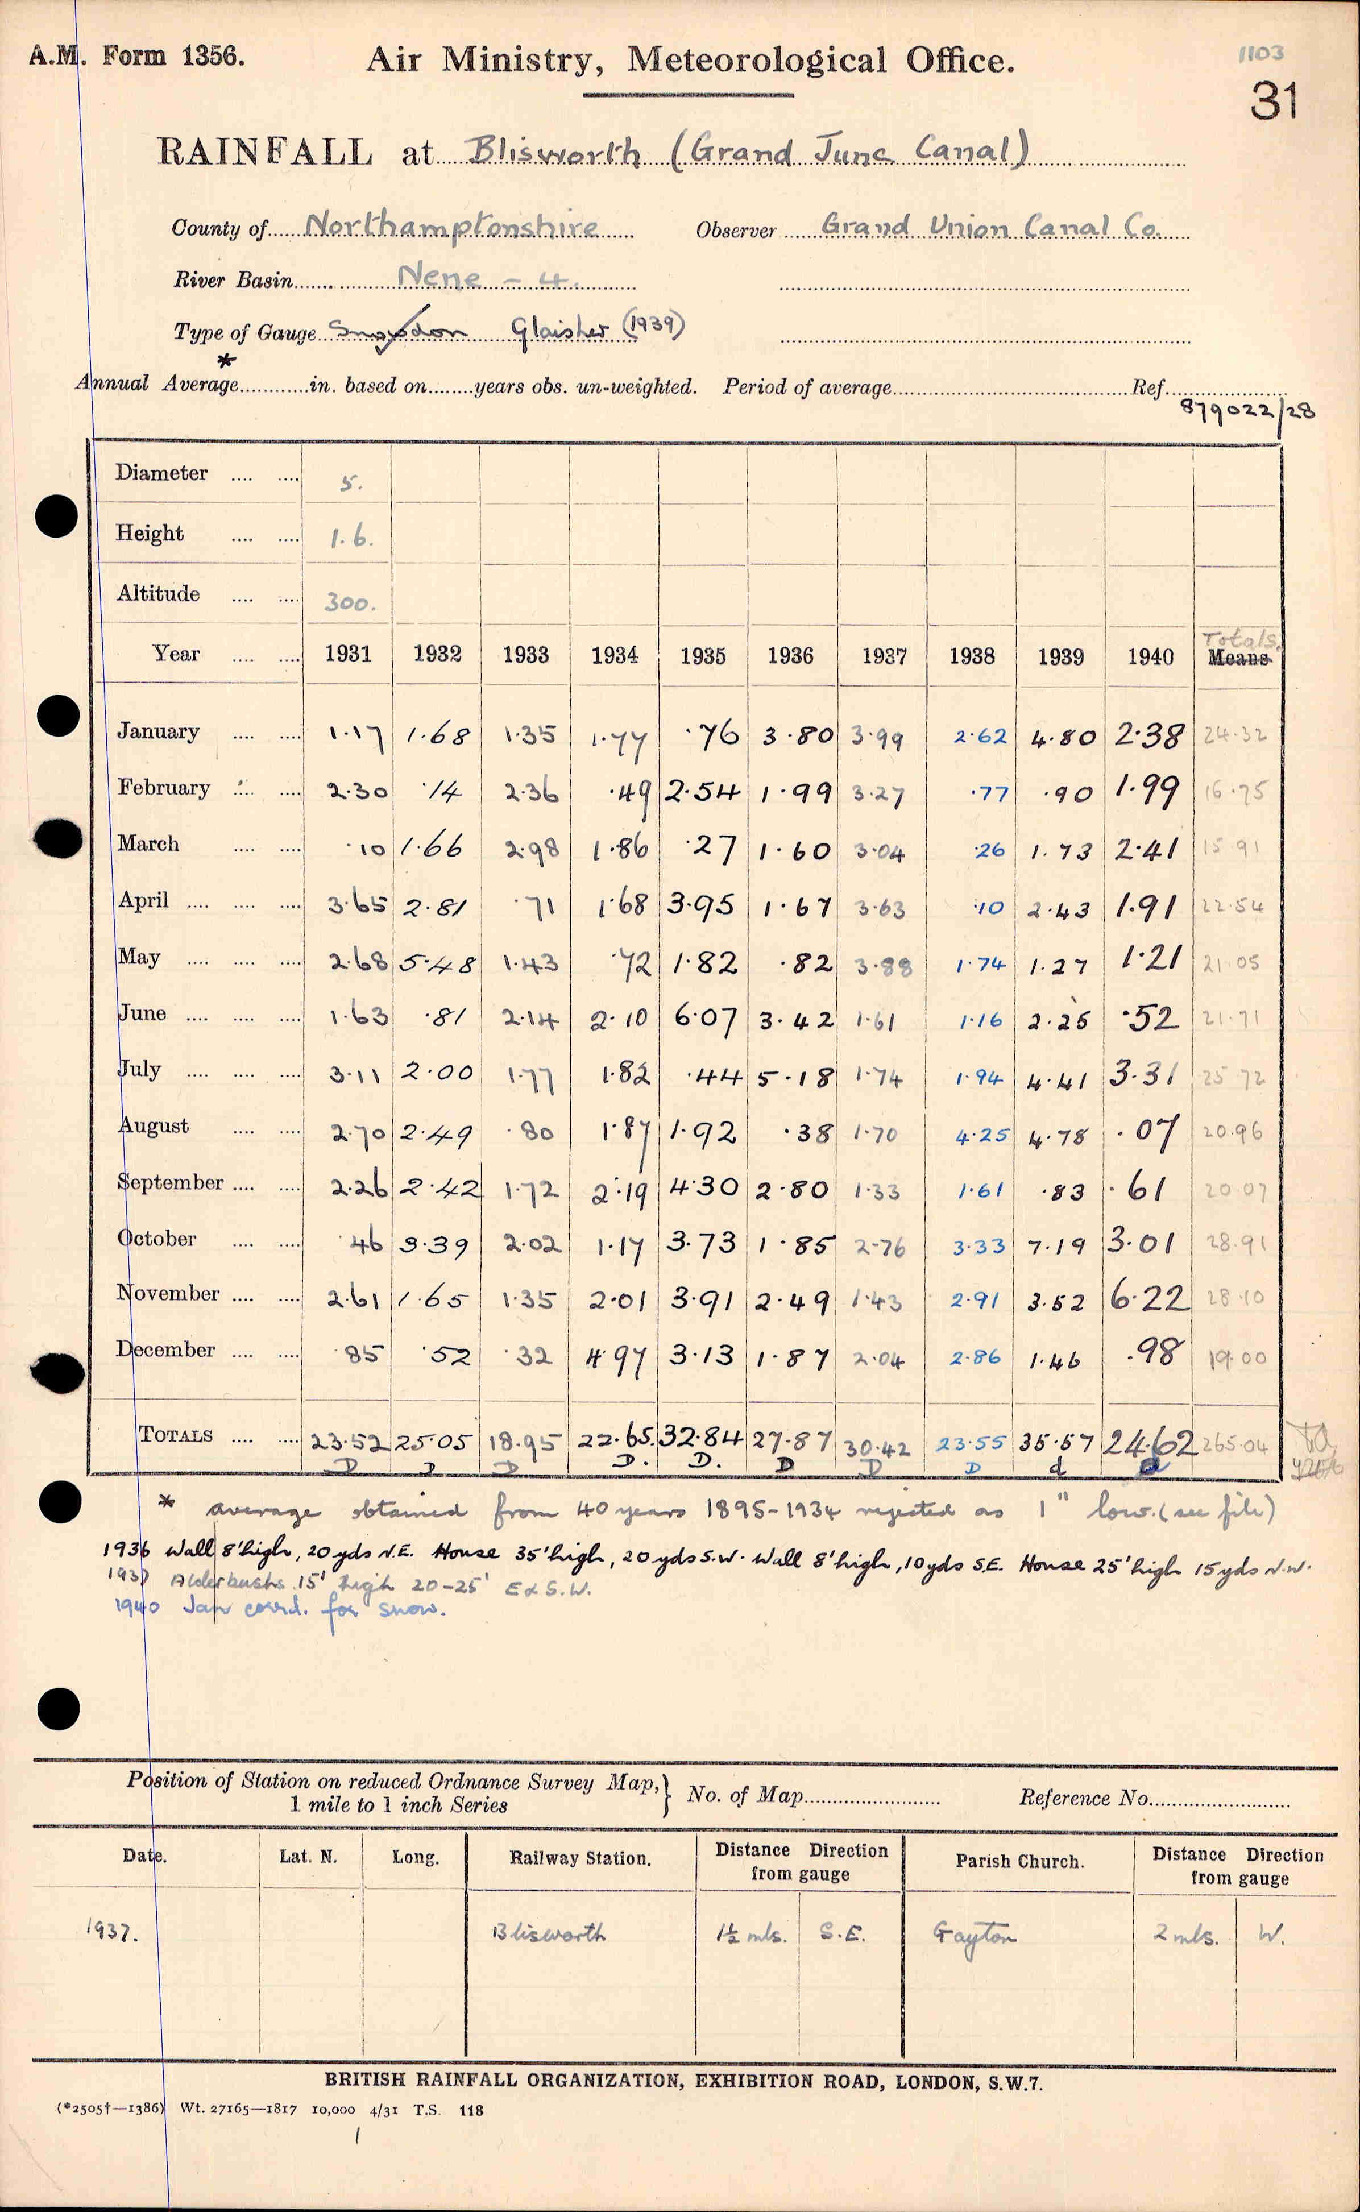 A.M. Form 1356.
Air Ministry, Meteorological Office.
1103
31
RAINFALL at Blisworth (Grand Junc Canal)
County of Northamptonshire Observer Grand Union Canal Co.
River Basin Nene - 4.
Type of Gauge Snowdon Glaisher (1939)
*
Annual Average in. based on years obs. un-weighted. Period of average Ref.
879022/28
Diameter 5.
Height 1.6.
Altitude 300.
Totals.
Year 1931 1932 1933 1934 1935 1936 1937 1938 1939 1940 Means
January 1.17 1.68 1.35 1.77 .76 3.80 3.99 2.62 4.80 2.38 24.32
February 2.30 .14 2.36 .49 2.54 1.99 3.27 .77 .90 1.99 16.75
March .10 1.66 2.98 1.86 .27 1.60 3.04 .26 1.73 2.41 15.91
April 3.65 2.81 .71 1.68 3.95 1.67 3.63 .10 2.43 1.91 22.54
May 2.68 5.48 1.43 .72 1.82 .82 3.88 1.74 1.27 1.21 21.05
June 1.63 .81 2.14 2.10 6.07 3.42 1.61 1.16 2.25 .52 21.71
July 3.11 2.00 1.77 1.82 .44 5.18 1.74 1.94 4.41 3.31 25.72
August 2.70 2.49 .80 1.87 1.92 .38 1.70 4.25 4.78 .07 20.96
September 2.26 2.42 1.72 2.19 4.30 2.80 1.33 1.61 .83 .61 20.07
October .46 3.39 2.02 1.17 3.73 1.85 2.76 3.33 7.19 3.01 28.91
November 2.61 1.65 1.35 2.01 3.91 2.49 1.43 2.91 3.52 6.22 28.10
December .85 .52 .32 4.97 3.13 1.87 2.04 2.86 1.46 .98 19.00
TOTALS 23.52 25.05 18.95 22.65. 32.84 27.87 30.42 23.55 35.57 24.62 265.04
D D D D. D. D D D d d
* average obtained from 40 years 1895-1934 rejected as 1" low. (see file)
1936 Wall 8' high, 20 yds N.E. House 35' high, 20 yds S.W. Wall 8' high, 10 yds S.E. House 25' high 15 yds N.W.
1937 Alderbushs 15' high 20-25' E & S.W.
1940 Jan corrd. for snow.
Position of Station on reduced Ordnance Survey Map,} No. of Map Reference No.
1 mile to 1 inch Series
Date. Lat. N. Long. Railway Station. Distance Direction from gauge Parish Church. Distance Direction from gauge
1937. Blisworth 1½ mls. S.E. Gayton 2 mls. W.
BRITISH RAINFALL ORGANIZATION, EXHIBITION ROAD, LONDON, S.W.7.
(*2505†—1386) Wt. 27165—1817 10,000 4/31 T.S. 118